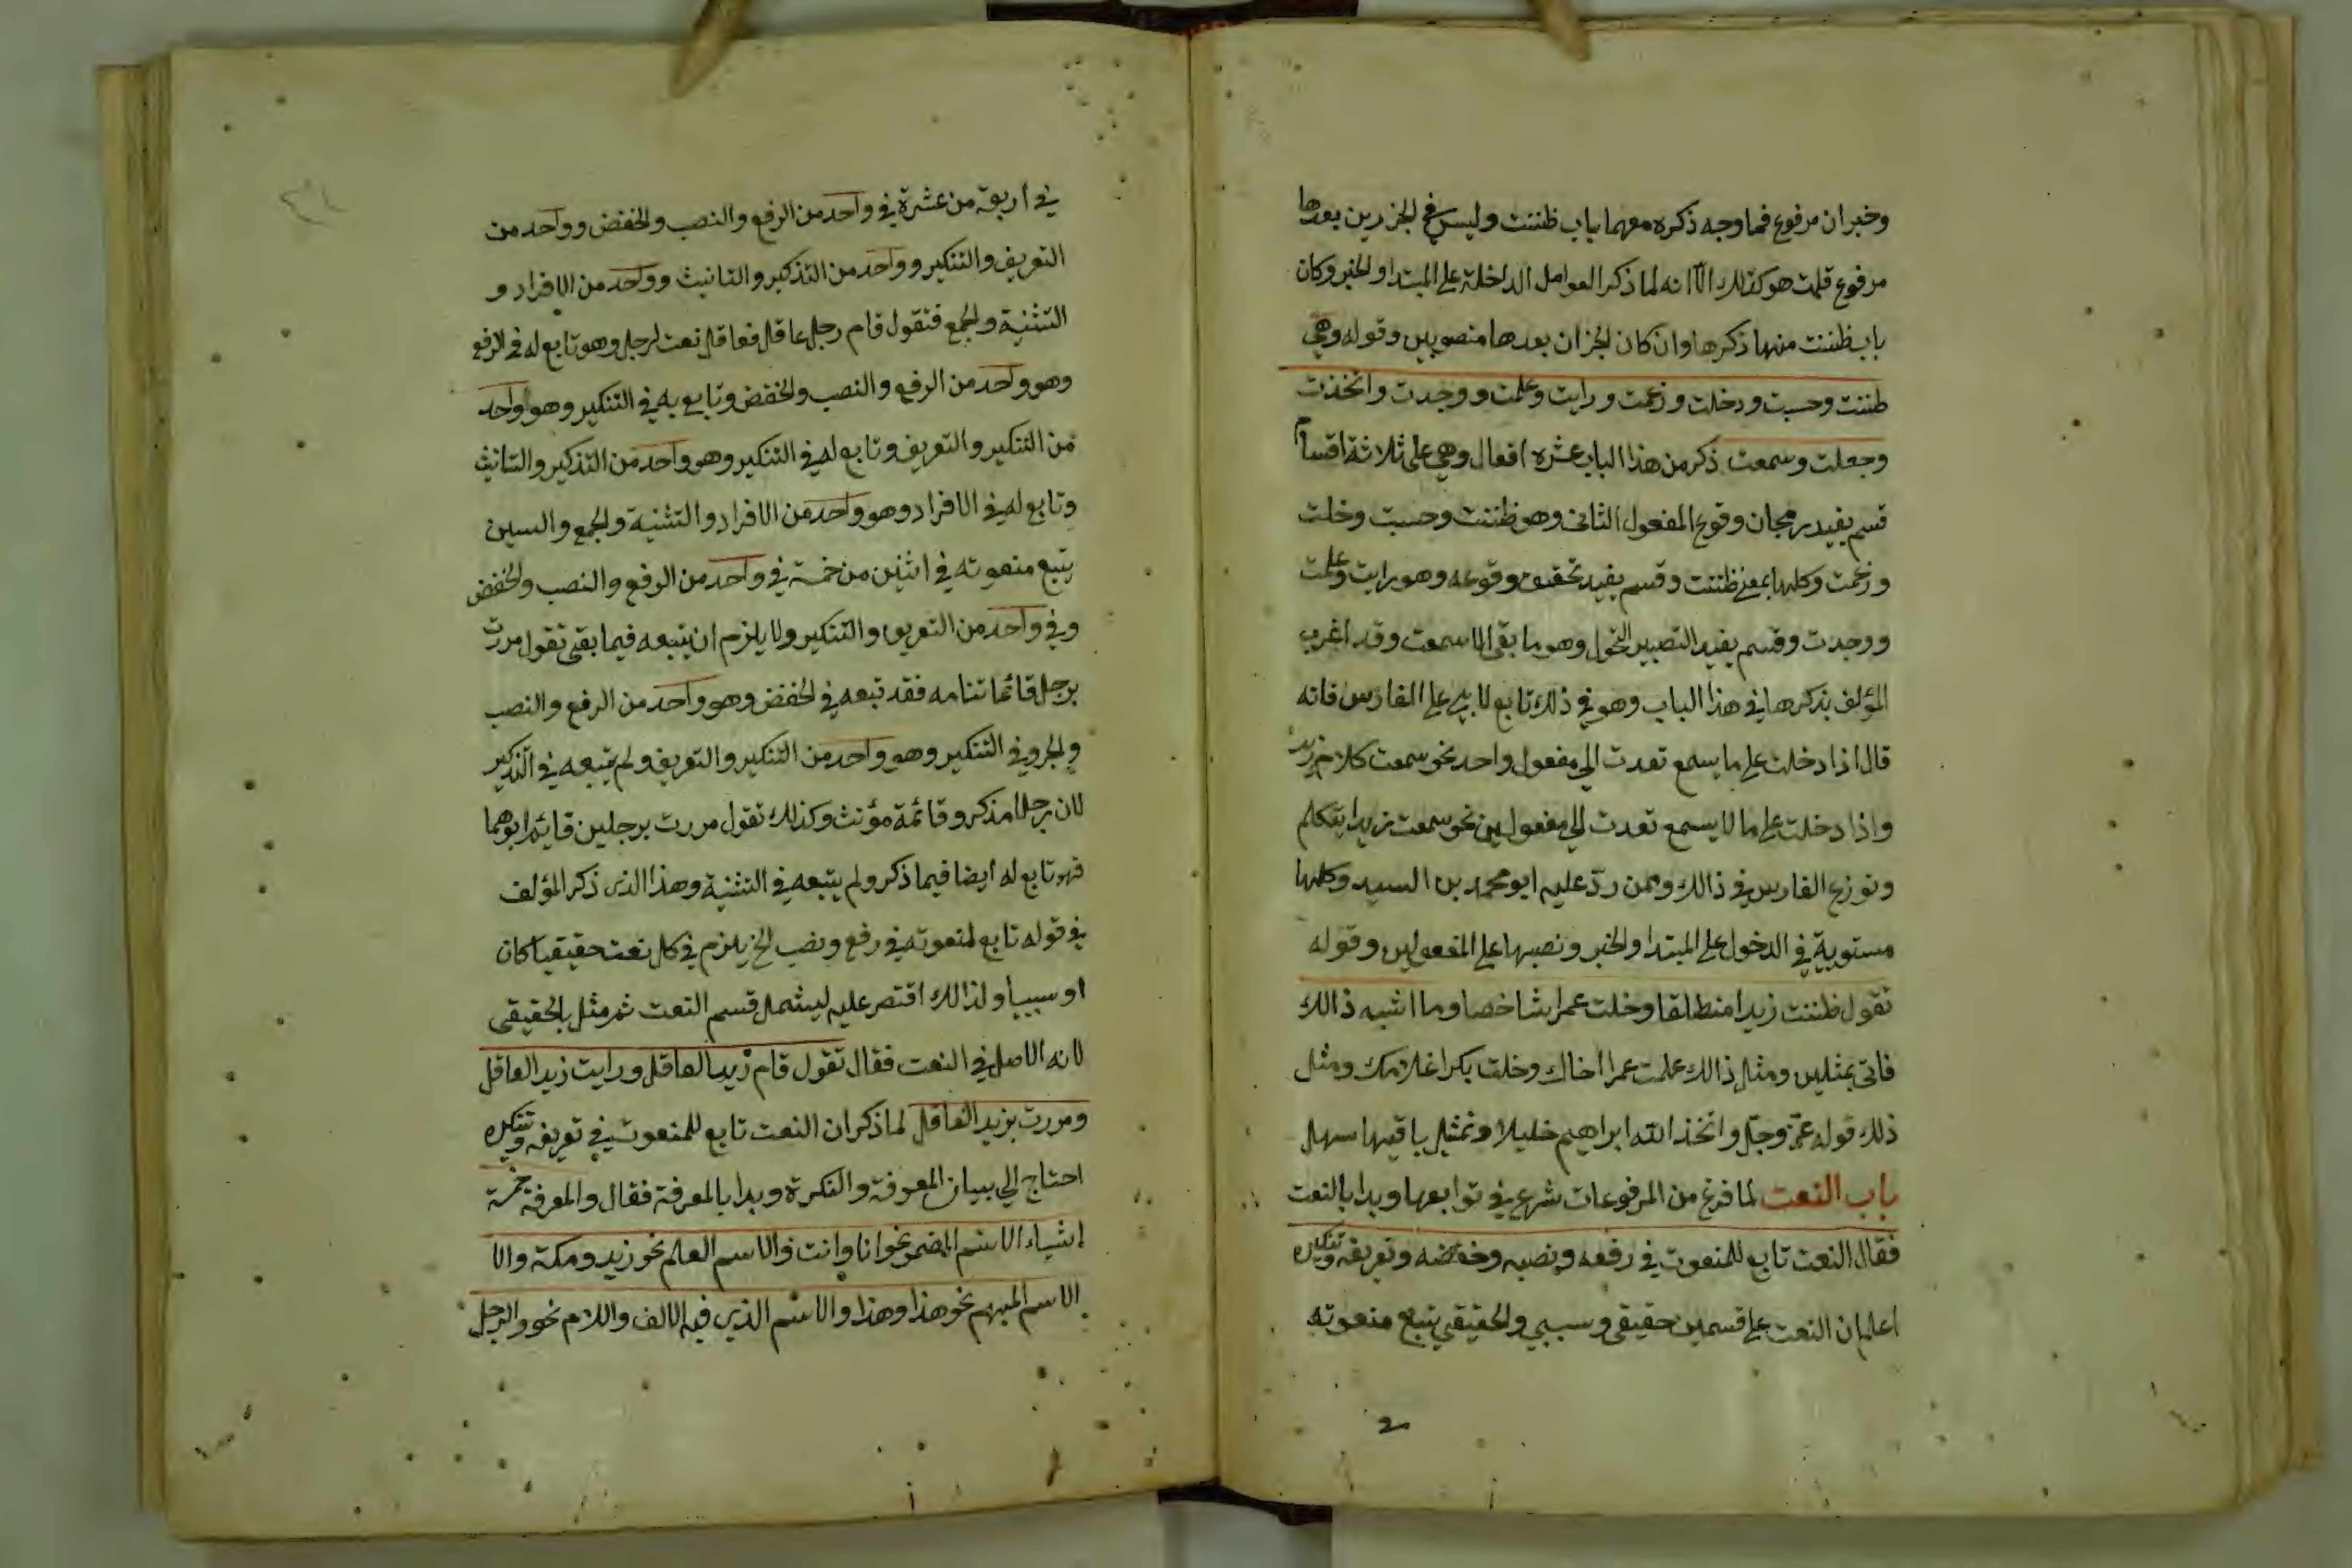 وخبران مرفوع فما وجه ذكره معهما باب ظننت وليس في الجزءين بعدها
مرفوع قلت هو كذلك الا انه لما ذكر العوامل الداخلة على المبتدا والخبر وكان
باب ظننت منها ذكرها وان كان الجزان بعدها منصوبين وقوله وهي
ظننت وحسبت وخلت وزعمت ورايت وعلمت ووجدت واتخذت
وجعلت وسمعت ذكر من هذا الباب عشره افعال وهي على ثلاثة اقسام
قسم يفيد رجحان وقوع المفعول الثاني وهو ظننت وحسبت وخلت
وزعمت وكلها بمعنى ظننت وقسم يفيد تحقيق وقوعه وهو رايت وعلمت
ووجدت وقسم يفيد التصيير التحول وهو ما بقي الا سمعت وقد اغرب
المؤلف بذكرها في هذا الباب وهو في ذلك تابع لابي علي الفارس فانه
قال اذا دخلت على ما يسمع تعدت الي مفعول واحد نحو سمعت كلام زيد
واذا دخلت على ما لا يسمع تعدت الي مفعولين نحو سمعت زيدا يتكلم
ونوزع الفارس في ذالك وممن ردّ عليه ابو محمد بن السيد وكلها
مستوية في الدخول على المبتدا والخبر ونصبها على المفعولين وقوله
تقول ظننت زيدا منطلقا وخلت عمرا شاخصا وما اشبه ذالك
فاتى بمثلين ومثل ذالك علمت عمرا اخاك وخلت بكرا غلامك ومثل
ذلك قوله عزّ وجلّ واتخذ الله ابراهيم خليلا وتمثيل باقيها سهل
باب النعت لما فرغ من المرفوعات شرع في توابعها وبدا بالنعت
فقال النعت تابع للمنعوت في رفعه ونصبه وخفضه وتعريفه وتنكيره
اعلم ان النعت على قسمين حقيقي وسببي والحقيقي يتبع منعوته
في اربعة من عشرة في واحد من الرفع والنصب والخفض وواحد من
التعريف والتنكير وواحد من التذكير والتانيث وواحد من الافراد و
التثنية والجمع فتقول قام رجل عاقل فعاقل نعت لرجل وهو تابع له في الرفع
وهو واحد من الرفع والنصب والخفض وتابع به في التنكير وهو واحد
من التنكير والتعريف وتابع له في التنكير وهو واحد من التذكير والتانيث
وتابع له في الافراد وهو واحد من الافراد والتثنية والجمع والسببن
يتبع منعوته في اثنين من خمسة في واحد من الرفع والنصب والخفض
وفي واحد من التعريف والتنكير ولا يلزم ان يتبعه فيما بقي تقول مررت
برجل قائما فقد تبعه في الخفض وهو واحد من الرفع والنصب
والجر وفي التنكير وهو واحد من التنكير والتعريف ولم يتبعه في التذكير
لان رجلا مذكر وقائمة مؤنث وكذلك تقول مررت برجلين قايم ابوهما
فهو تابع له ايضا فيما ذكر ولم يتبعه في التثنية وهذا الذي ذكر المؤلف
في قوله تابع لمنعوته في رفع ونصب الخ يلزم في كل نعت حقيقيا كان
او سببيا ولذالك اقتصر عليه ليشمل قسم النعت ثم مثل بالحقيقي
لانه الاصل في النعت فقال تقول قام زيد العاقل ورايت زيد العاقل
ومررت بزيد العاقل لما ذكر ان النعت تابع للمنعوت في تعريفه وتنكيره
احتاج الي بيان المعرفة والنكرة وبدا بالمعرفة فقال والمعرفة خمسة
اشياء الاسم المضمر نحو انا وانت والاسم العلم نحو زيد ومكة والا
الاسم المبهم نحو هذا وهذا والاسم الذي فيه الالف واللام نحو والرجل